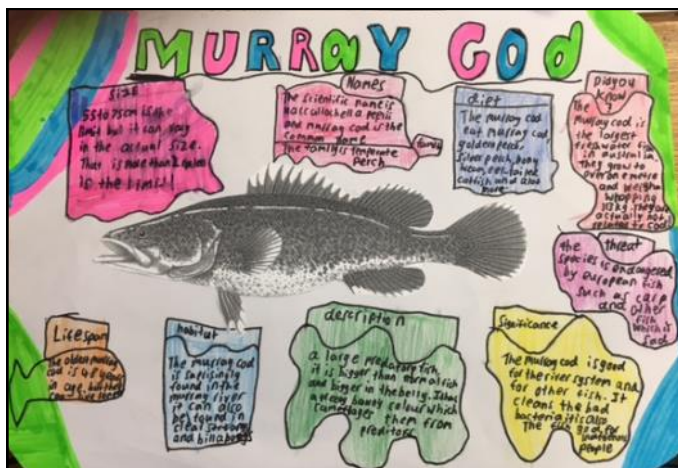 MURRAY COD
Size
55 to 75cm is the
limit but it can vary
in the actual size.
That is more than 2
is the limit!
Names
The scientific name is
Maccullochella peelii
and murray cod is the
common name
family
The family is temperate
perch
diet
The murray cod
eat murray cod,
golden perch,
silver perch, bony
bream, eel-tailed
catfish and a lot
more
Did you
know
The
Murray cod is
the largest
freshwater fish
in australia.
They grow to
over one metre
and weigh a
whopping
113kg. They are
actually not
related to cod!
threat
the
species is endangered
by european fish
such as carp
and other
fish
which is
sad
Lifespan
The oldest murray
cod is 48 years
in age, but they
can live
habitat
The murray cod
is surprisingly
found in the
murray river
it can also
be found in
clear streams
and billabongs
description
a large predatory fish,
it is bigger than normal fish
and bigger in the belly. It has
a colour which
camoflages them from
preditors
Significance
The murray cod is good
for the river system and
for other fish. It
cleans the bad
bacteria it is also
The fish god for
people